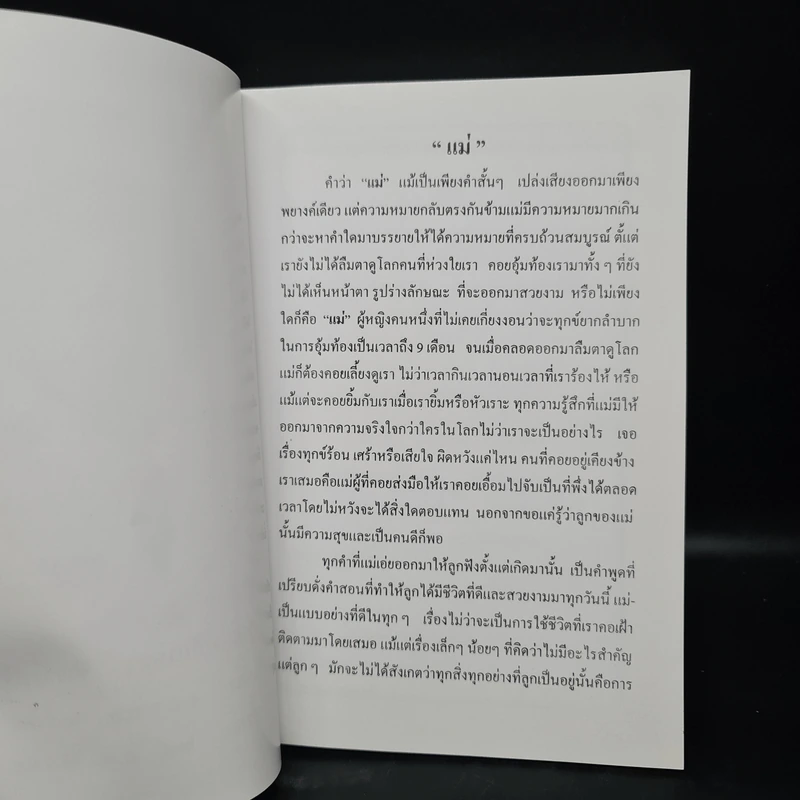 “ แม่ ”
คำว่า “แม่” แม้เป็นเพียงคำสั้นๆ เปล่งเสียงออกมาเพียง
พยางค์เดียว แต่ความหมายกลับตรงกันข้ามแม่มีความหมายมากเกิน
กว่าจะหาคำใดมาบรรยายให้ได้ความหมายที่ครบถ้วนสมบูรณ์ ตั้แต่
เรายังไม่ได้ลืมตาดูโลกคนที่ห่วงใยเรา คอยอุ้มท้องเรามาทั้ง ๆ ที่ยัง
ไม่ได้เห็นหน้าตา รูปร่างลักษณะ ที่จะออกมาสวยงาม หรือไม่เพียง
ใดก็คือ “แม่” ผู้หญิงคนหนึ่งที่ไม่เคยเกี่ยงงอนว่าจะทุกข์ยากลำบาก
ในการอุ้มท้องเป็นเวลาถึง 9 เดือน จนเมื่อคลอดออกมาลืมตาดูโลก
แม่ก็ต้องคอยเลี้ยงดูเรา ไม่ว่าเวลากินเวลานอนเวลาที่เราร้องไห้ หรือ
แม้แต่จะคอยยิ้มกับเราเมื่อเรายิ้มหรือหัวเราะ ทุกความรู้สึกที่แม่มีให้
ออกมาจากความจริงใจกว่าใครในโลกไม่ว่าเราจะเป็นอย่างไร เจอ
เรื่องทุกข์ร้อน เศร้าหรือเสียใจ ผิดหวังแค่ไหน คนที่คอยอยู่เคียงข้าง
เราเสมอคือแม่ผู้ที่คอยส่งมือให้เราคอยเอื้อมไปจับเป็นที่พึ่งได้ตลอด
เวลาโดยไม่หวังจะได้สิ่งใดตอบแทน นอกจากขอแค่รู้ว่าลูกของแม่
นั้นมีความสุขและเป็นคนดีก็พอ
ทุกคำที่แม่เอ่ยออกมาให้ลูกฟังตั้งแต่เกิดมานั้น เป็นคำพูดที่
เปรียบดั่งคำสอนที่ทำให้ลูกได้มีชีวิตที่ดีและสวยงามมาทุกวันนี้ แม่-
เป็นแบบอย่างที่ดีในทุก ๆ เรื่องไม่ว่าจะเป็นการใช้ชีวิตที่เราคอเฝ้า
ติดตามมาโดยเสมอ แม้แต่เรื่องเล็กๆ น้อยๆ ที่คิดว่าไม่มีอะไรสำคัญ
แต่ลูก ๆ มักจะไม่ได้สังเกตว่าทุกสิ่งทุกอย่างที่ลูกเป็นอยู่นั้นคือการ